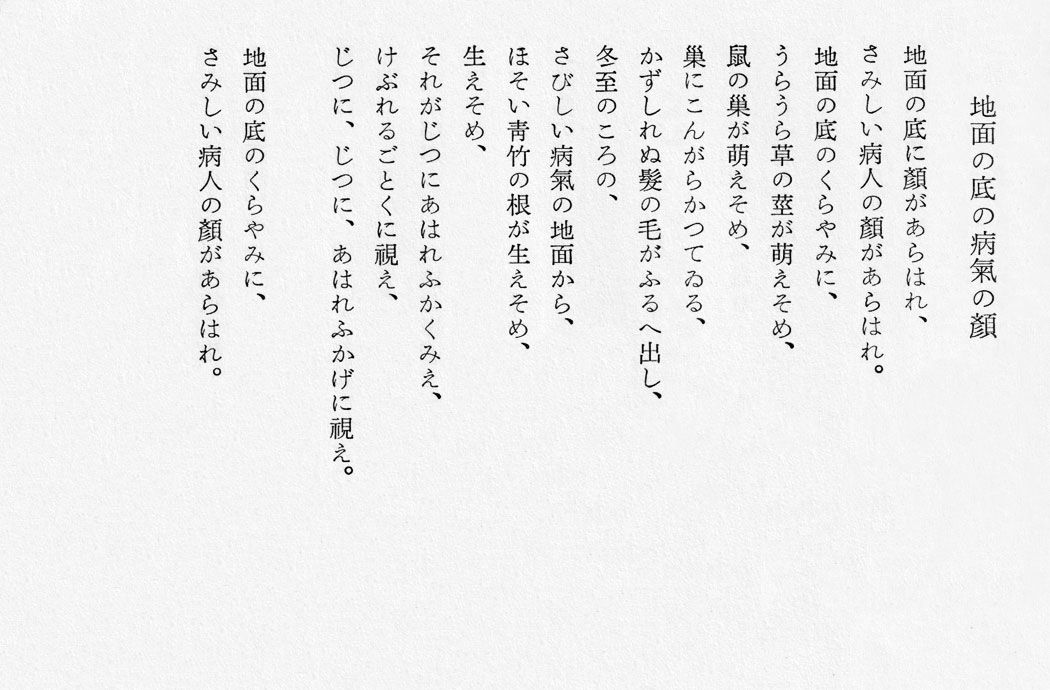 地面の底の病氣の顏
地面の底に顏があらはれ、
さみしい病人の顏があらはれ。
地面の底のくらやみに、
うらうら草の莖が萌えそめ、
鼠の巢が萌えそめ、
巢にこんがらかつてゐる、
かずしれぬ髮の毛がふるへ出し、
冬至のころの、
さびしい病氣の地面から、
ほそい靑竹の根が生えそめ、
生えそめ、
それがじつにあはれふかくみえ、
けぶれるごとくに視え、
じつに、じつに、あはれふかげに視え。
地面の底のくらやみに、
さみしい病人の顏があらはれ。